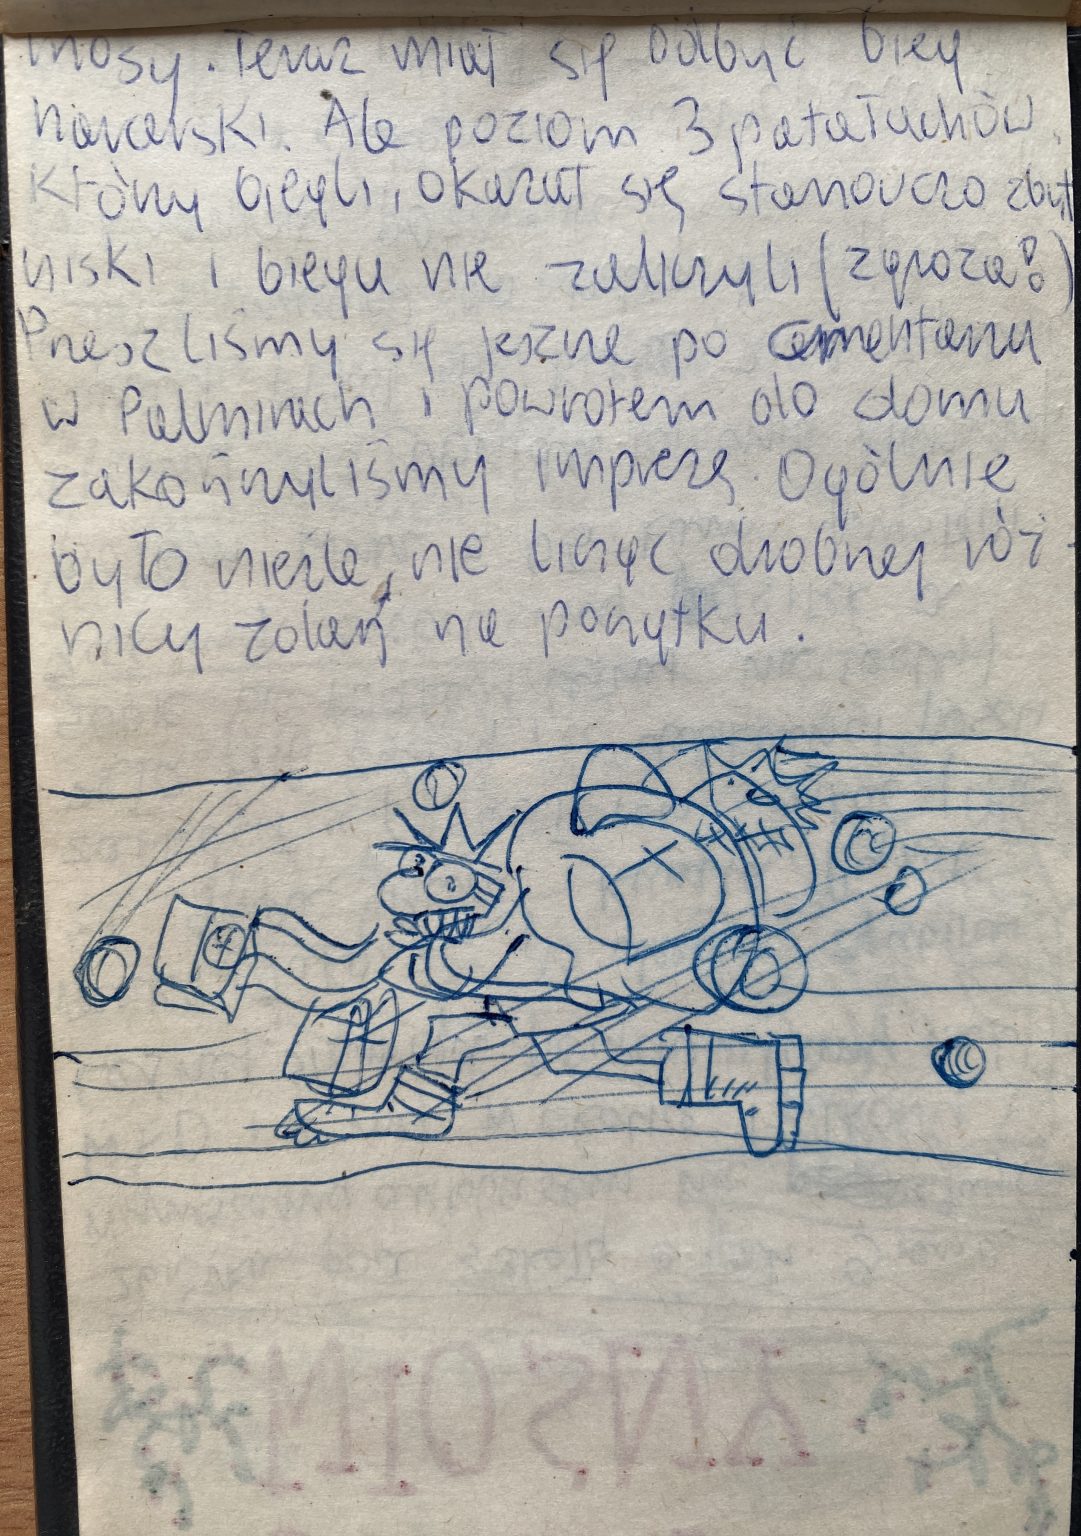 mosy. Teraz miał się odbyć bieg
harcerski. Ale poziom 3 patałachów,
który biegli, okazał się stanowczo zbyt
niski i biegu nie zaliczyli (zgroza!)
Przeszliśmy się jeszcze po cmentarzu
w Palmirach i powrotem do domu
zakończyliśmy imprezę. Ogólnie
było nieźle, nie licząc drobnej róż-
nicy zdań na początku.